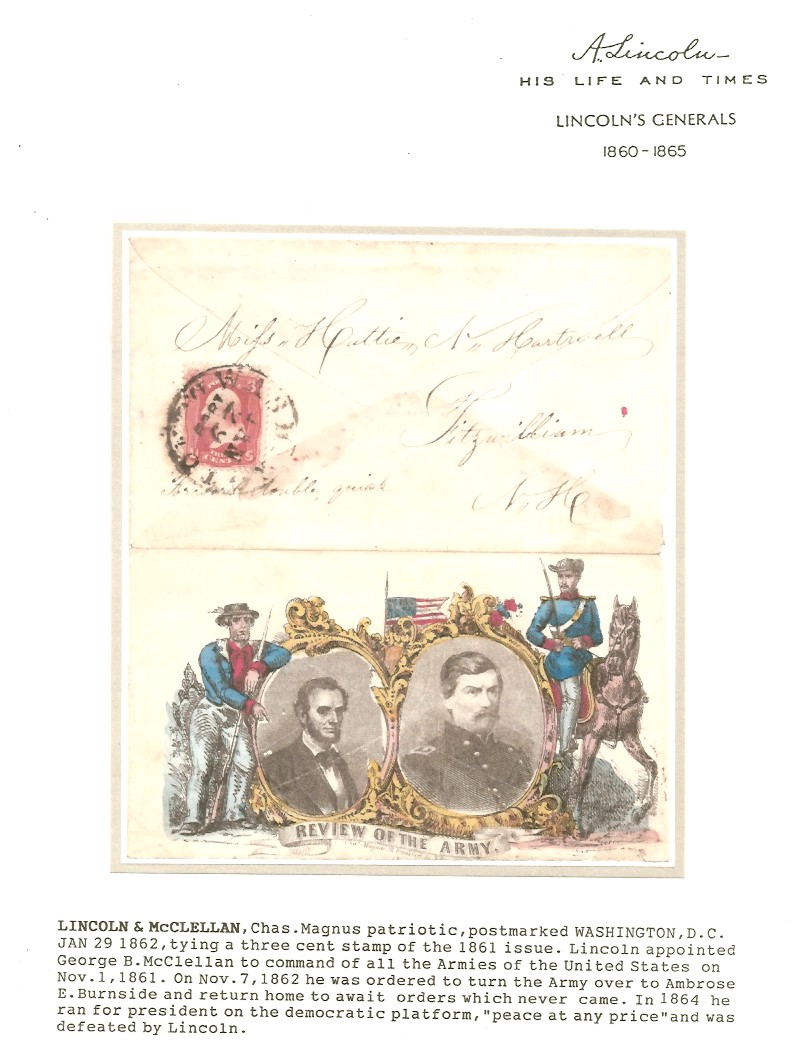 A. Lincoln
HIS LIFE AND TIMES
LINCOLN'S GENERALS
1860-1865
Miss Hattie N. Hartwell
Fitzwilliam
N. H
double quick
REVIEW OF THE ARMY.
LINCOLN & McCLELLAN, Chas.Magnus patriotic, postmarked WASHINGTON, D.C.
JAN 29 1862, tying a three cent stamp of the 1861 issue. Lincoln appointed
George B.McClellan to command of all the Armies of the United States on
Nov.1,1861. On Nov.7,1862 he was ordered to turn the Army over to Ambrose
E.Burnside and return home to await orders which never came. In 1864 he
ran for president on the democratic platform,"peace at any price"and was
defeated by Lincoln.